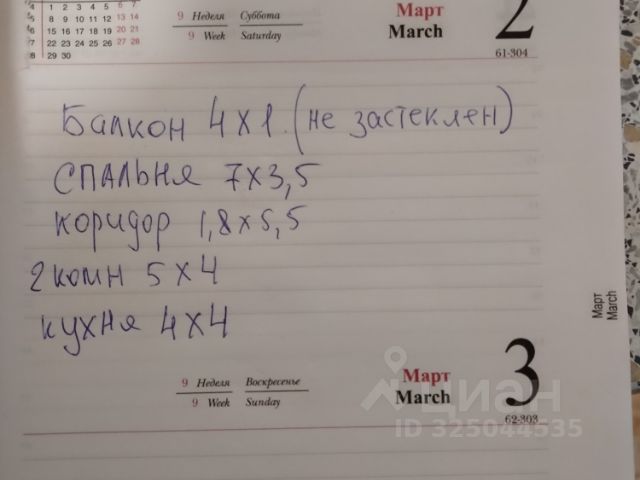 4 1 2 3 4 5 6 7
5 8 9 10 11 12 13 14
6 15 16 17 18 19 20 21
7 22 23 24 25 26 27 28
8 29 30
9 Неделя Суббота
9 Week Saturday
Март
March
2
61-304
Балкон 4х1. (не застеклен)
СПАЛЬНЯ 7х3,5
коридор 1,8х5,5
2 комн 5х4
кухня 4х4
Март
March
9 Неделя Воскресенье
9 Week Sunday
Март
March
3
62-303
циан
ID 325044535